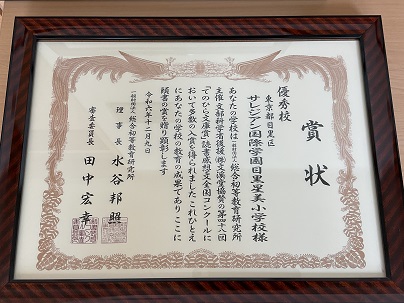 賞状
優秀校
東京都目黒区
サレジアン国際学園目黒星美小学校様
あなたの学校は一般財団法人総合初等教育研究所
主催 文部科学省後援 ㈱文溪堂協賛の第四十八回
「てのひら文庫賞」読書感想文全国コンクールに
おいて多数の入賞を得られました これひとえ
にあなたの学校の教育の成果であり ここに
顕書の賞を贈り顕彰します
令和六年十二月九日
一般財団法人 総合初等教育研究所
理事長 水谷邦照
審査委員長 田中宏幸